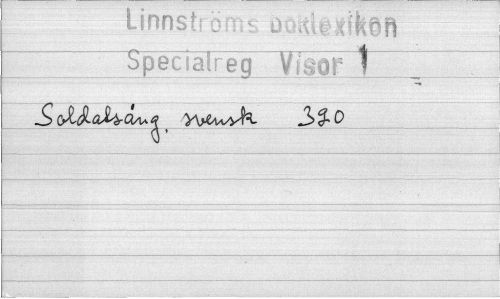 Linnströms Boklexikon
Specialreg Visor 1
Soldatsång, svensk 390